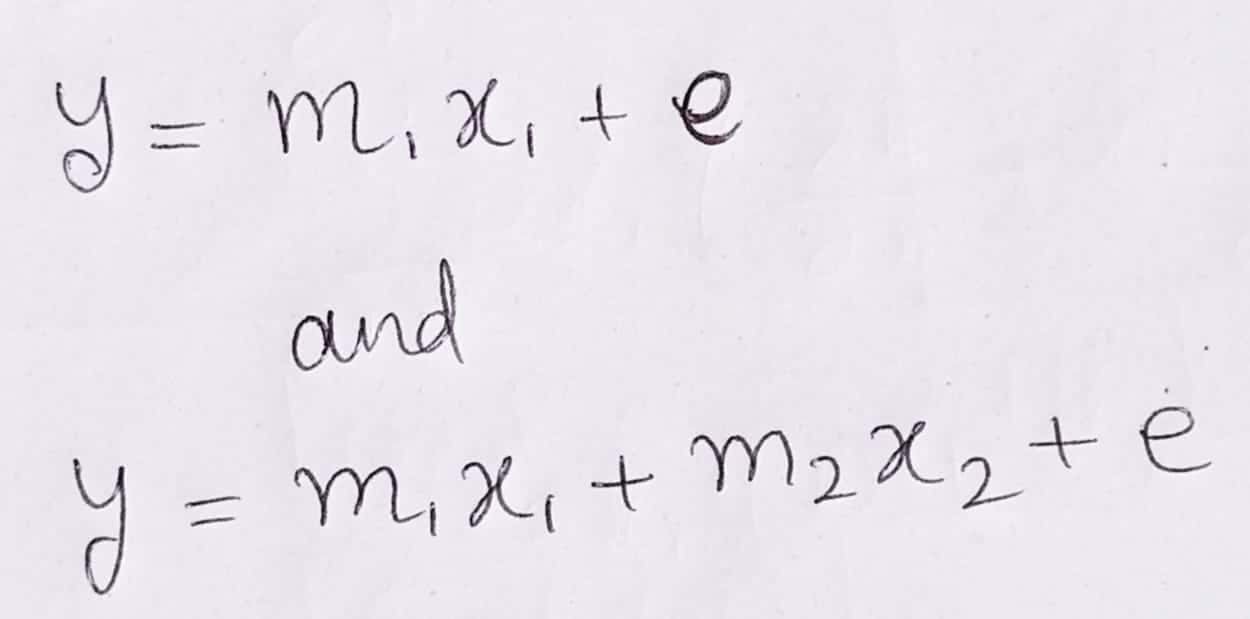 y = m₁x₁ + e
and
y = m₁x₁ + m₂x₂ + e